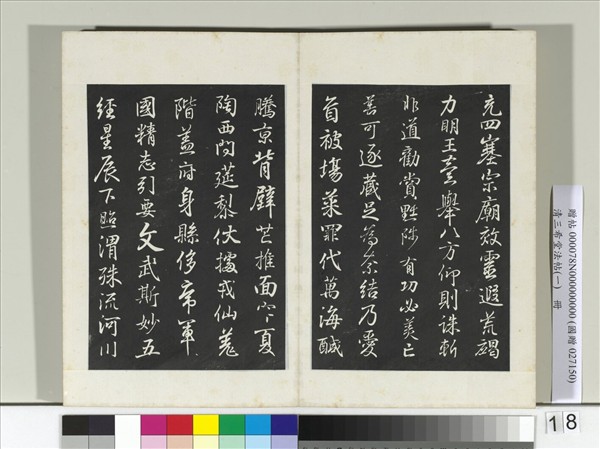 充四塞宗廟效靈遐荒竭
力明王臺舉八方仰則誅斬
非道勸賞黜陟有功必羨亡
善可逐藏足為奈結乃愛
首被場菜罪代萬海醎
騰京背璧芒推面夏
陶西門筵黎伏據戎仙羌
階蓋府身縣侈席軍
國精志引要文武斯妙五
經星辰下照渭殊流河川
贈帖 000078N000000000 (國贈 027150)
清三希堂法帖(一) 冊
18